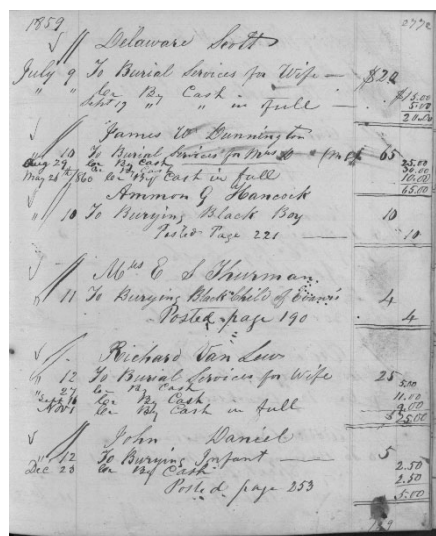 1859
Delaware Scott
July 9 To Burial Services for Wife — $20
" " Cr By Cash — $15.00
Sept 19 " " in full — 5.00
20.00
James W Dunnington
" 10 To Burial Services for Mrs 65
Aug 29 Cr By Cash 25.00
30.00
May 21th/1860 Cr By Cash in full 10.00
65.00
Ammon G Hancock
" 10 To Burying Black Boy 10
Posted Page 221 — 10
Mrs E S Thurman
" 11 To Burying Black Child of 4
Posted page 190 4
Richard Van Lew
" 12 To Burial Services for Wife 25
" 27 Cr By Cash 5.00
Sept 16 Cr By Cash 11.00
Nov 1 Cr By Cash in full 9.00
$25.00
John Daniel
" 12 To Burying Infant — 5
2.50
Dec 23 Cr By Cash 2.50
Posted page 253 5.00